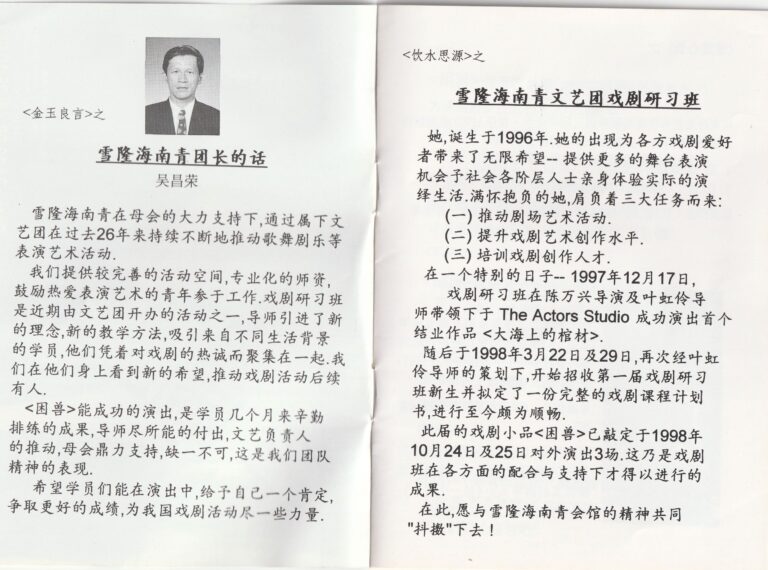 <金玉良言>之
雪隆海南青团长的话
吴昌荣
雪隆海南青在母会的大力支持下,通过属下文
艺团在过去26年来持续不断地推动歌舞剧乐等
表演艺术活动.
我们提供较完善的活动空间,专业化的师资,
鼓励热爱表演艺术的青年参于工作.戏剧研习班
是近期由文艺团开办的活动之一,导师引进了新
的理念,新的教学方法,吸引来自不同生活背景
的学员,他们凭着对戏剧的热诚而聚集在一起.我
们在他们身上看到新的希望,推动戏剧活动后续
有人.
<困兽>能成功的演出,是学员几个月来辛勤
排练的成果,导师尽所能的付出,文艺负责人
的推动,母会鼎力支持,缺一不可,这是我们团队
精神的表现.
希望学员们能在演出中,给予自己一个肯定,
争取更好的成绩,为我国戏剧活动尽一些力量.
<饮水思源>之
雪隆海南青文艺团戏剧研习班
她,诞生于1996年.她的出现为各方戏剧爱好
者带来了无限希望-- 提供更多的舞台表演
机会予社会各阶层人士亲身体验实际的演
绎生活.满怀抱负的她,肩负着三大任务而来:
(一) 推动剧场艺术活动.
(二) 提升戏剧艺术创作水平.
(三) 培训戏剧创作人才.
在一个特别的日子-- 1997年12月17日,
戏剧研习班在陈万兴导演及叶虹伶导
师带领下于 The Actors Studio 成功演出首个
结业作品 <大海上的棺材>.
随后于1998年3月22日及29日,再次经叶虹
伶导师的策划下,开始招收第一届戏剧研习
班新生并拟定了一份完整的戏剧课程计划
书,进行至今颇为顺畅.
此届的戏剧小品<困兽>已敲定于1998年
10月24日及25日对外演出3场.这乃是戏剧
班在各方面的配合与支持下才得以进行的
成果.
在此,愿与雪隆海南青会馆的精神共同
"抖擞"下去！